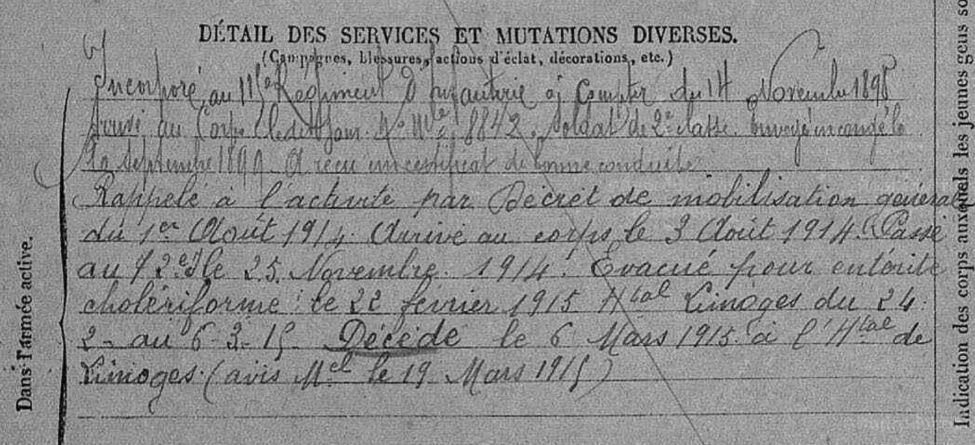 DÉTAIL DES SERVICES ET MUTATIONS DIVERSES.
(Campagnes, blessures, actions d'éclat, décorations, etc.)
Incorporé au 115e Régiment d'Infanterie à Compter du 14 Novembre 1898
Arrivé au Corps le dit Jour. No Mle 8842. Soldat de 2e classe. Envoyé en congé le
septembre 1899. A reçu un certificat de bonne conduite
Rappelé à l'activité par Décret de mobilisation générale
du 1er Août 1914. Arrivé au corps le 3 Août 1914. Passé
au le 25 Novembre 1914. Évacué pour entérite
cholériforme le 22 février 1915 Hial Limoges du 24.
2- au 6-3-15. Décédé le 6 Mars 1915 à l'Hial de
Limoges. (avis Mel le 19 Mars 1915)
Dans l'armée active.
Indication des corps auxquels les jeunes gens so